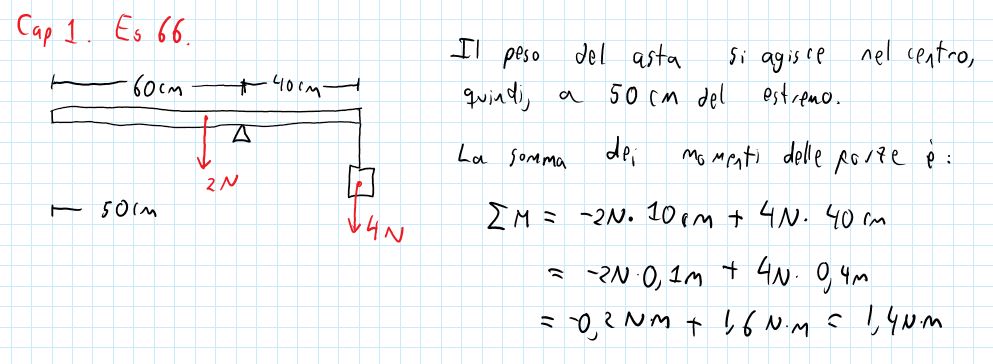 Cap 1. Es 66.
60cm 40cm
2N
50cm
4N
Il peso del asta si agisce nel centro,
quindi, a 50cm del estremo.
La somma dei momenti delle forze è:
∑M = -2N·10cm + 4N·40cm
= -2N·0,1m + 4N·0,4m
= -0,2N·m + 1,6N·m = 1,4N·m